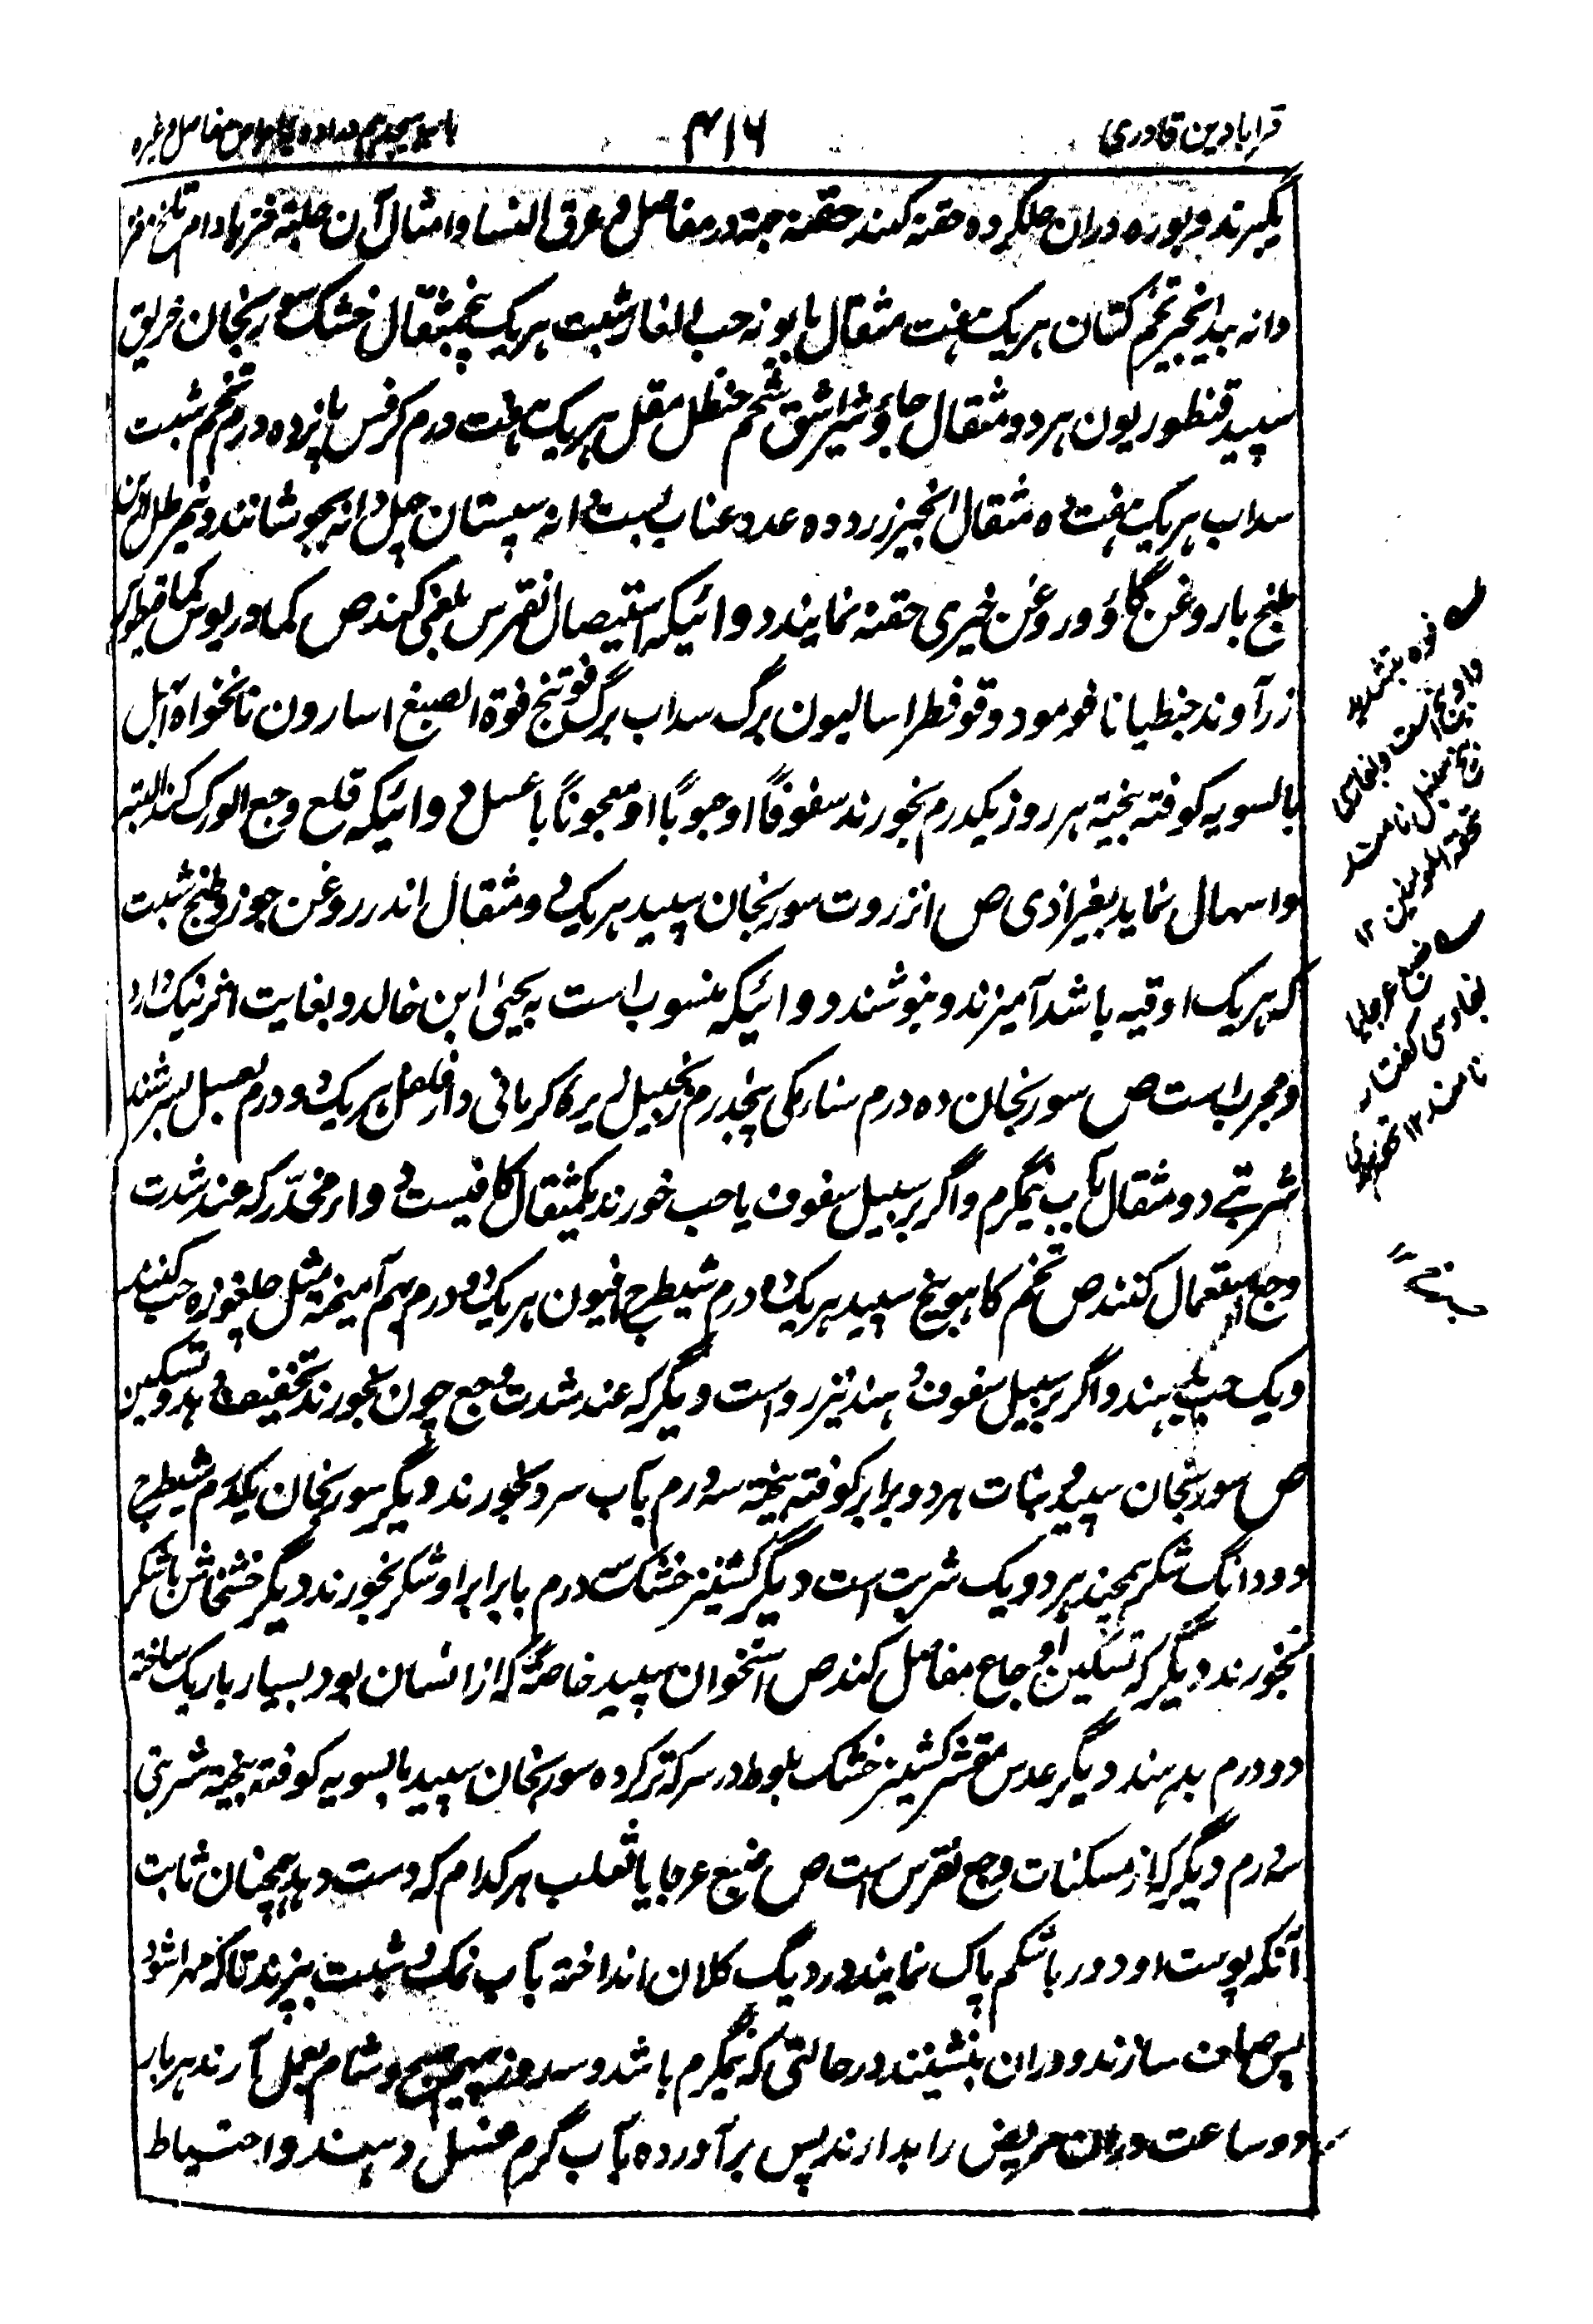 قرابادین قادری
۴۱۶
باب مفاصل وغیره
بگیرند و بوره دران حلکرده حقنه کنند حقنه جهة درد مفاصل و عرق النسا و امثال آن حلبه مغز بادام تلخ مغز
دانه بیدانجیر تخم کتان هریک هفت مثقال بابونه حب الغار شبت هریک پنجمثقال خشک سورنجان خربق
سپید قنطوریون هر دو مثقال جاؤشیر اشق شحم حنظل مقل هریک هفت درم کرفس پانزده درم تخم شبت
سداب هریک هفت ده مثقال انجیر زرد ده عدد عناب بست دانه سپستان چهل دانه بجوشانند و نیم رطل ازین
طبخ با روغن گاؤ و روغن خیری حقنه نمایند دوائیکه استیصال نقرس بلغمی کند ص کمادریوس کمافیطوس
زرآوند جنطیانا فو مو دوقو فطراسالیون برگ سداب برگ فوتنج فوة الصبغ اسارون نانخواه ابهل
بالسویه کوفته بیخته هر روز یکدرم بخورند سفوفًا او حبوبًا او معجونًا با عسل دوائیکه قلع وجع الورک کند البته
و اسهال نماید بغیر اذی ص انزروت سورنجان سپید هریک دو مثقال اندر روغن جوز و طبخ شبت
که هریک اوقیه باشد آمیزند و بنوشند دوائیکه منسوب است به یحییٰ ابن خالد و بغایت اثر نیک دارد
و مجرب است ص سورنجان ده درم سنا مکی پنجدرم زنجبیل زیره کرمانی دارفلفل هریک دو درم بعسل بسرشند
شربتے دو مثقال بآب نیمگرم و اگر بر سبیل سفوف یا حب خورند یکمثقال کافیست دواء مخدر که عند شدت
وجع استعمال کنند ص تخم کاهو بنج سپید هریک دو درم شیطرج افیون هریک دو درم بهم آمیخته مثل چلغوزه حب کنند
و یک حب بدهند و اگر بر سبیل سفوف دهند نیز رواست دیگر که عند شدت وجع چون بخورند تخفیف دهد و تسکین
ص سورنجان سپید نبات هر دو برابر کوفته بیخته سه درم بآب سرد بخورند دیگر سورنجان یکدرم شیطرج
دو دانگ شکر همچند هر دو یک شربت است دیگر کشنیز خشک سه درم با برابر او شکر بخورند دیگر خشخاش با شکر
بخورند دیگر که تسکین اوجاع مفاصل کند ص استخوان سپید خاصةً که از انسان بود بسیار باریک ساخته
دو درم بدهند دیگر عدس مقشر کشنیز خشک بلوط در سرکه تر کرده سورنجان سپید بالسویه کوفته بیخته شربتی
سه درم دیگر که از مسکنات وجع نقرس است ص ضبع عرجا یا ثعلب هر کدام که دست دهد همچنان ثابت
آنکه پوست او دور یا شکم پاک نمایند در دیگ کلان انداخته بآب نمک و شبت بپزند تا که مهرا شود
پس صاف سازند و دران بنشینند در حالتی که نیمگرم باشد و سه روز پیهم صبح و شام بعمل آرند هر بار
دو ساعت دران مریض را بدارند پس برآورده بآب گرم غسل دهند و احتیاط
تحفة المومنین ۱۲
ضبع عرجا
بفارسی کفتار
نامند ۱۲